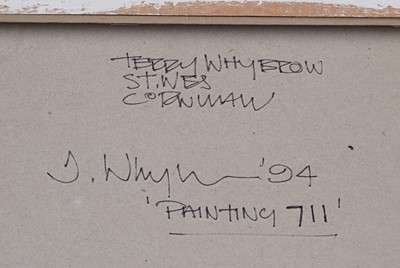 TERRY WHYBROW
ST. IVES
CORNWALL
T. Whybrow '94
'PAINTING 711'